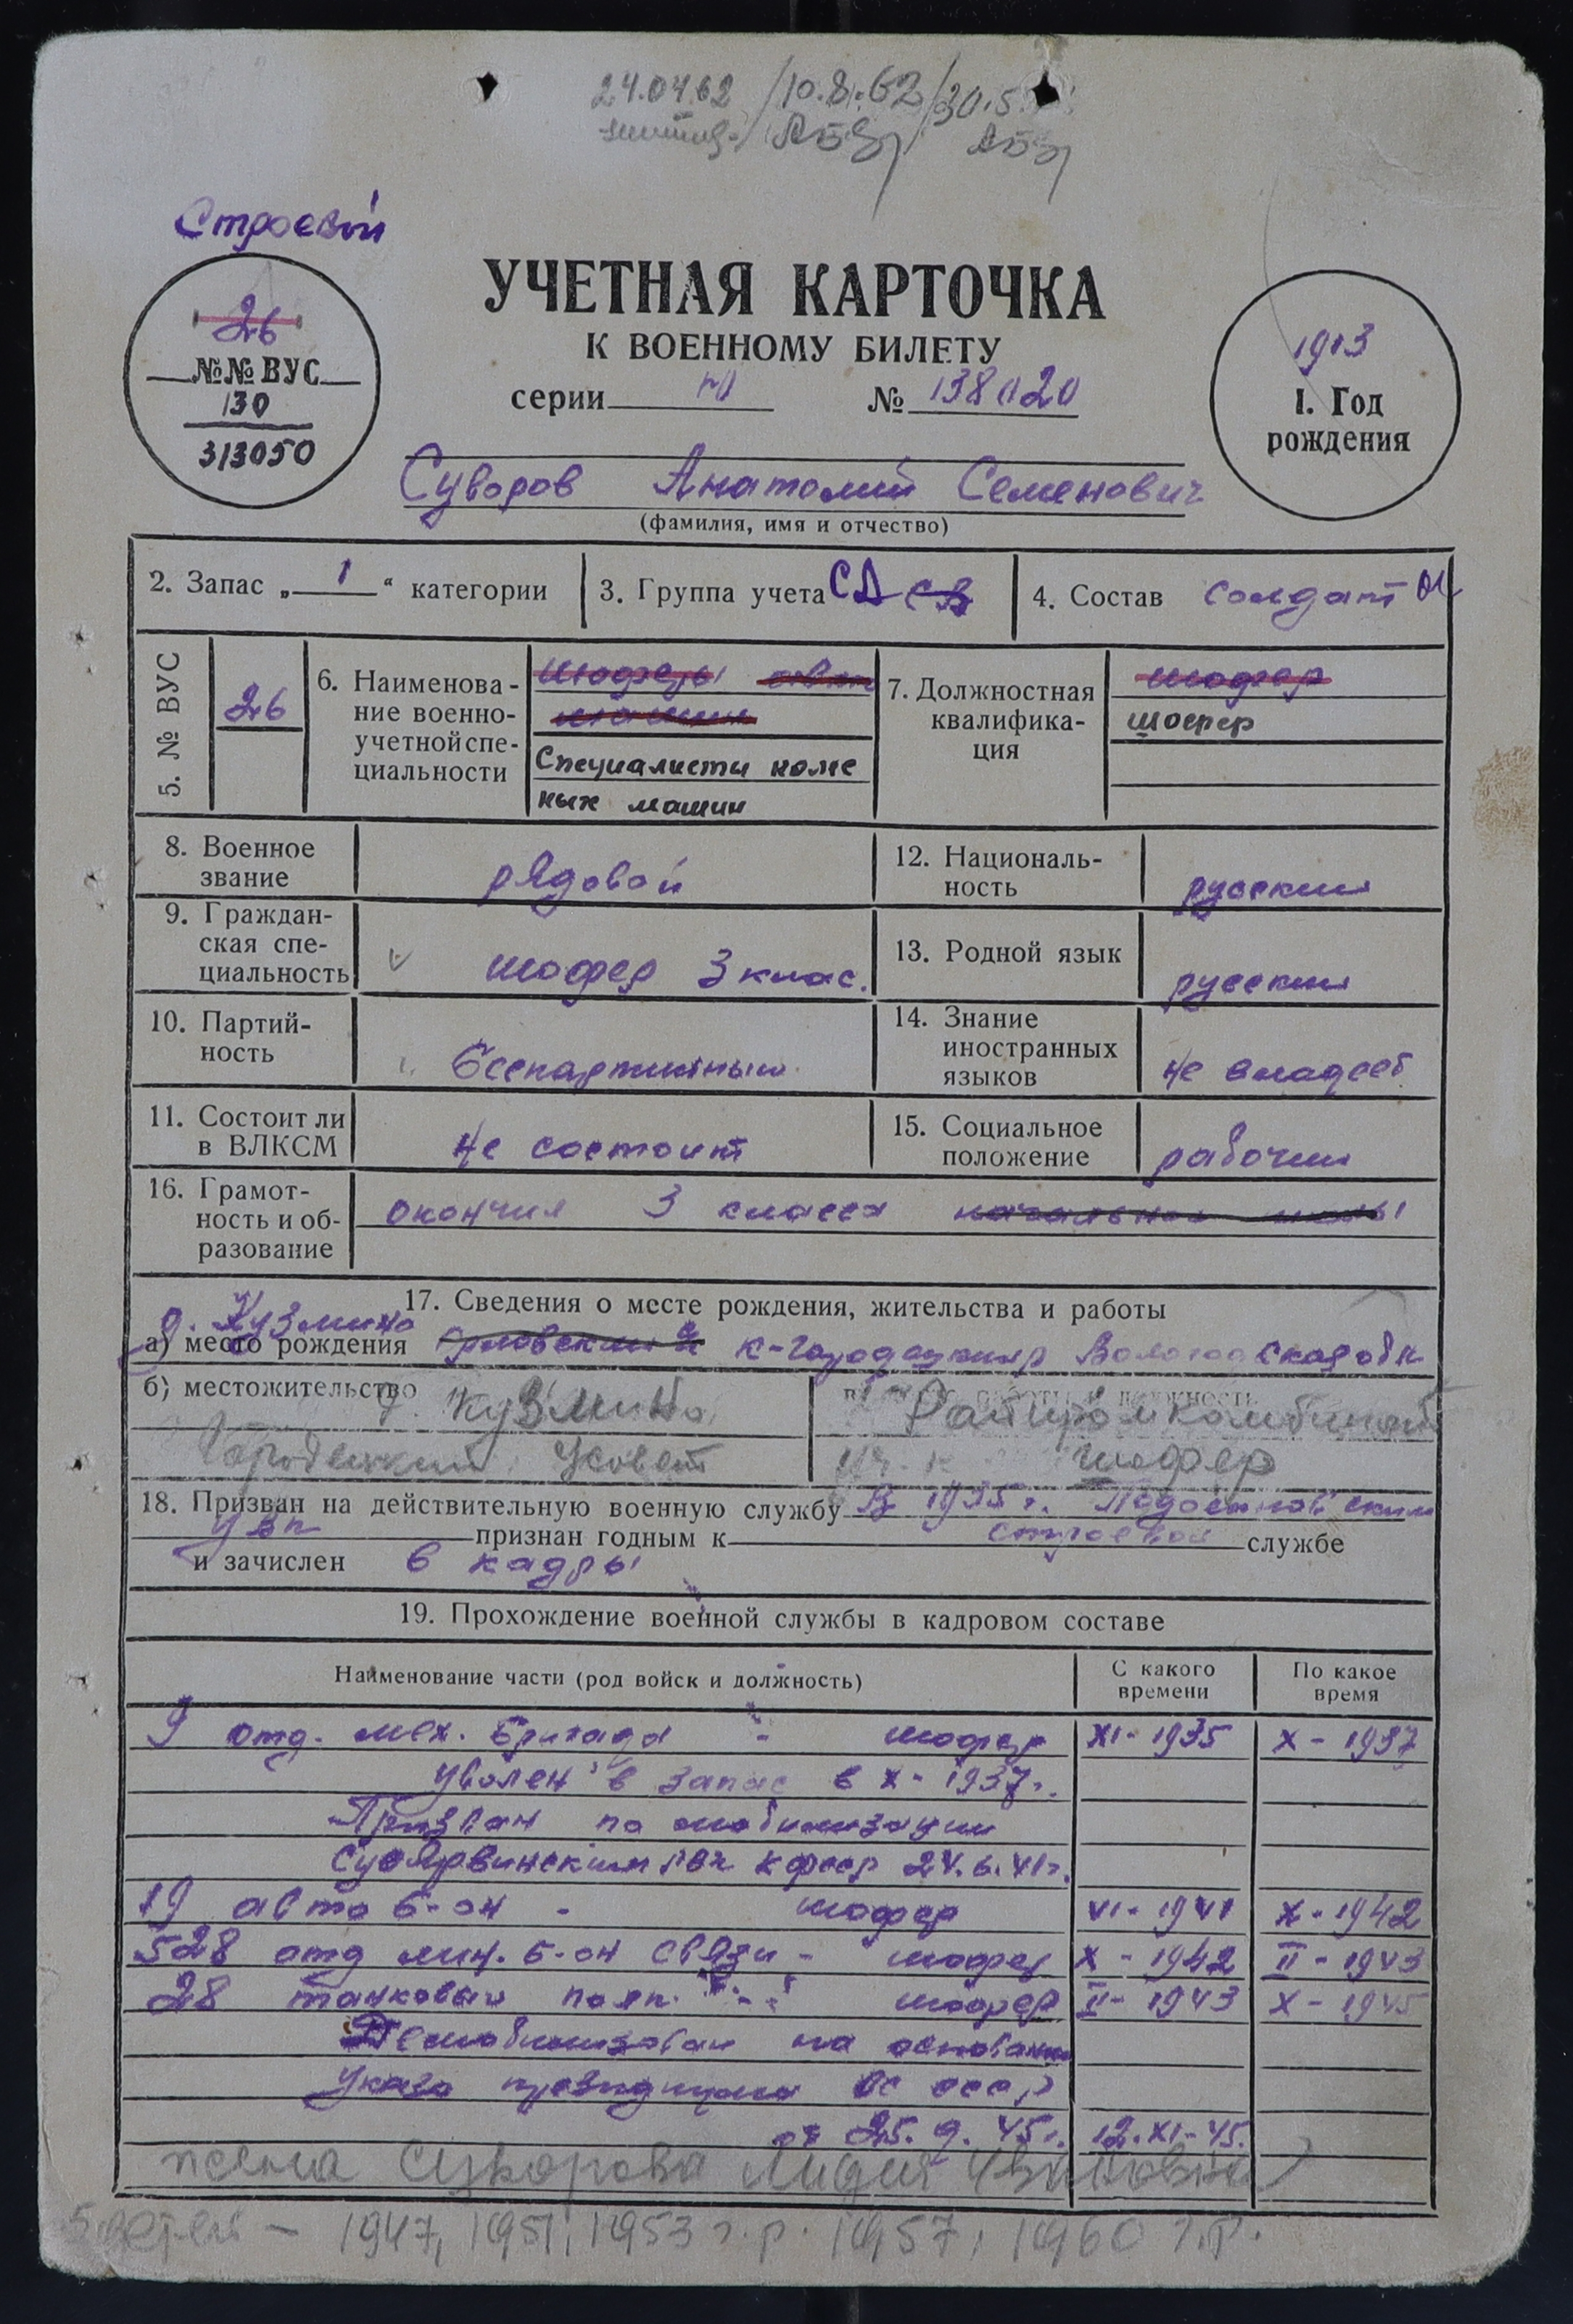 24.04.62 /10.8.62/ 30.5
Строевой
УЧЕТНАЯ КАРТОЧКА
К ВОЕННОМУ БИЛЕТУ
серии № 138020
26
№№ ВУС
130
313050
1913
1. Год
рождения
Суворов Анатолий Семенович
(фамилия, имя и отчество)
2. Запас „ 1 “ категории
3. Группа учета СА СВ
4. Состав солдат
5. № ВУС
26
6. Наименова-
ние военно-
учетной спе-
циальности
шоферы
машин
Специалисты колес
ных машин
7. Должностная
квалифика-
ция
шофер
шофер
8. Военное
звание
рядовой
12. Националь-
ность
русский
9. Граждан-
ская спе-
циальность
шофер 3 клас.
13. Родной язык
русский
10. Партий-
ность
беспартийный
14. Знание
иностранных
языков
не владеет
11. Состоит ли
в ВЛКСМ
не состоит
15. Социальное
положение
рабочий
16. Грамот-
ность и об-
разование
окончил 3 класса начальной школы
17. Сведения о месте рождения, жительства и работы
д. Кузмино
а) место рождения К-Городецкий р Вологодской обл
б) местожительство д. Кузмино
Городецкий с/совет
Райпромкомбинат
шофер
18. Призван на действительную военную службу В 1935 г.
признан годным к строевой службе
и зачислен в кадры
19. Прохождение военной службы в кадровом составе
Наименование части (род войск и должность)
С какого
времени
По какое
время
9 отд. мех. бригада - шофер XI-1935 X-1937
уволен в запас в X-1937г.
Призван по мобилизации
РВК КФССР 24.6.41г.
19 авто б-он - шофер VI-1941 X-1942
528 отд лин. б-он связи - шофер X-1942 II-1943
28 танковый полк - шофер II-1943 X-1945
Демобилизован на основании
Указа президиума ВС СССР
от 25.9.45г. 12.XI-45.
жена Суворова Лидия Ивановна
5 детей - 1947, 1951, 1953 г.р. 1957, 1960 г.р.